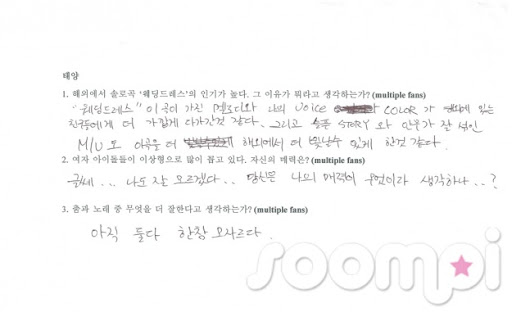 태양
1. 해외에서 솔로곡 '웨딩드레스'의 인기가 높다. 그 이유가 뭐라고 생각하는가? (multiple fans)
"웨딩드레스" 이 곡이 가진 멜로디와 나의 VOICE COLOR가 해외에 있는
친구들에게 더 가깝게 다가간것 같다. 그리고 슬픈 STORY 와 안무가 잘 섞인
M/V도 이곡을 더 해외에서 더 빛날수 있게 한것 같다.
2. 여자 아이돌들이 이상형으로 많이 뽑고 있다. 자신의 매력은? (multiple fans)
글쎄... 나도 잘 모르겠다... 당신은 나의 매력이 무엇이라 생각하나..?
3. 춤과 노래 중 무엇을 더 잘한다고 생각하는가? (multiple fans)
아직 둘다 한참 모자르다.
soompi